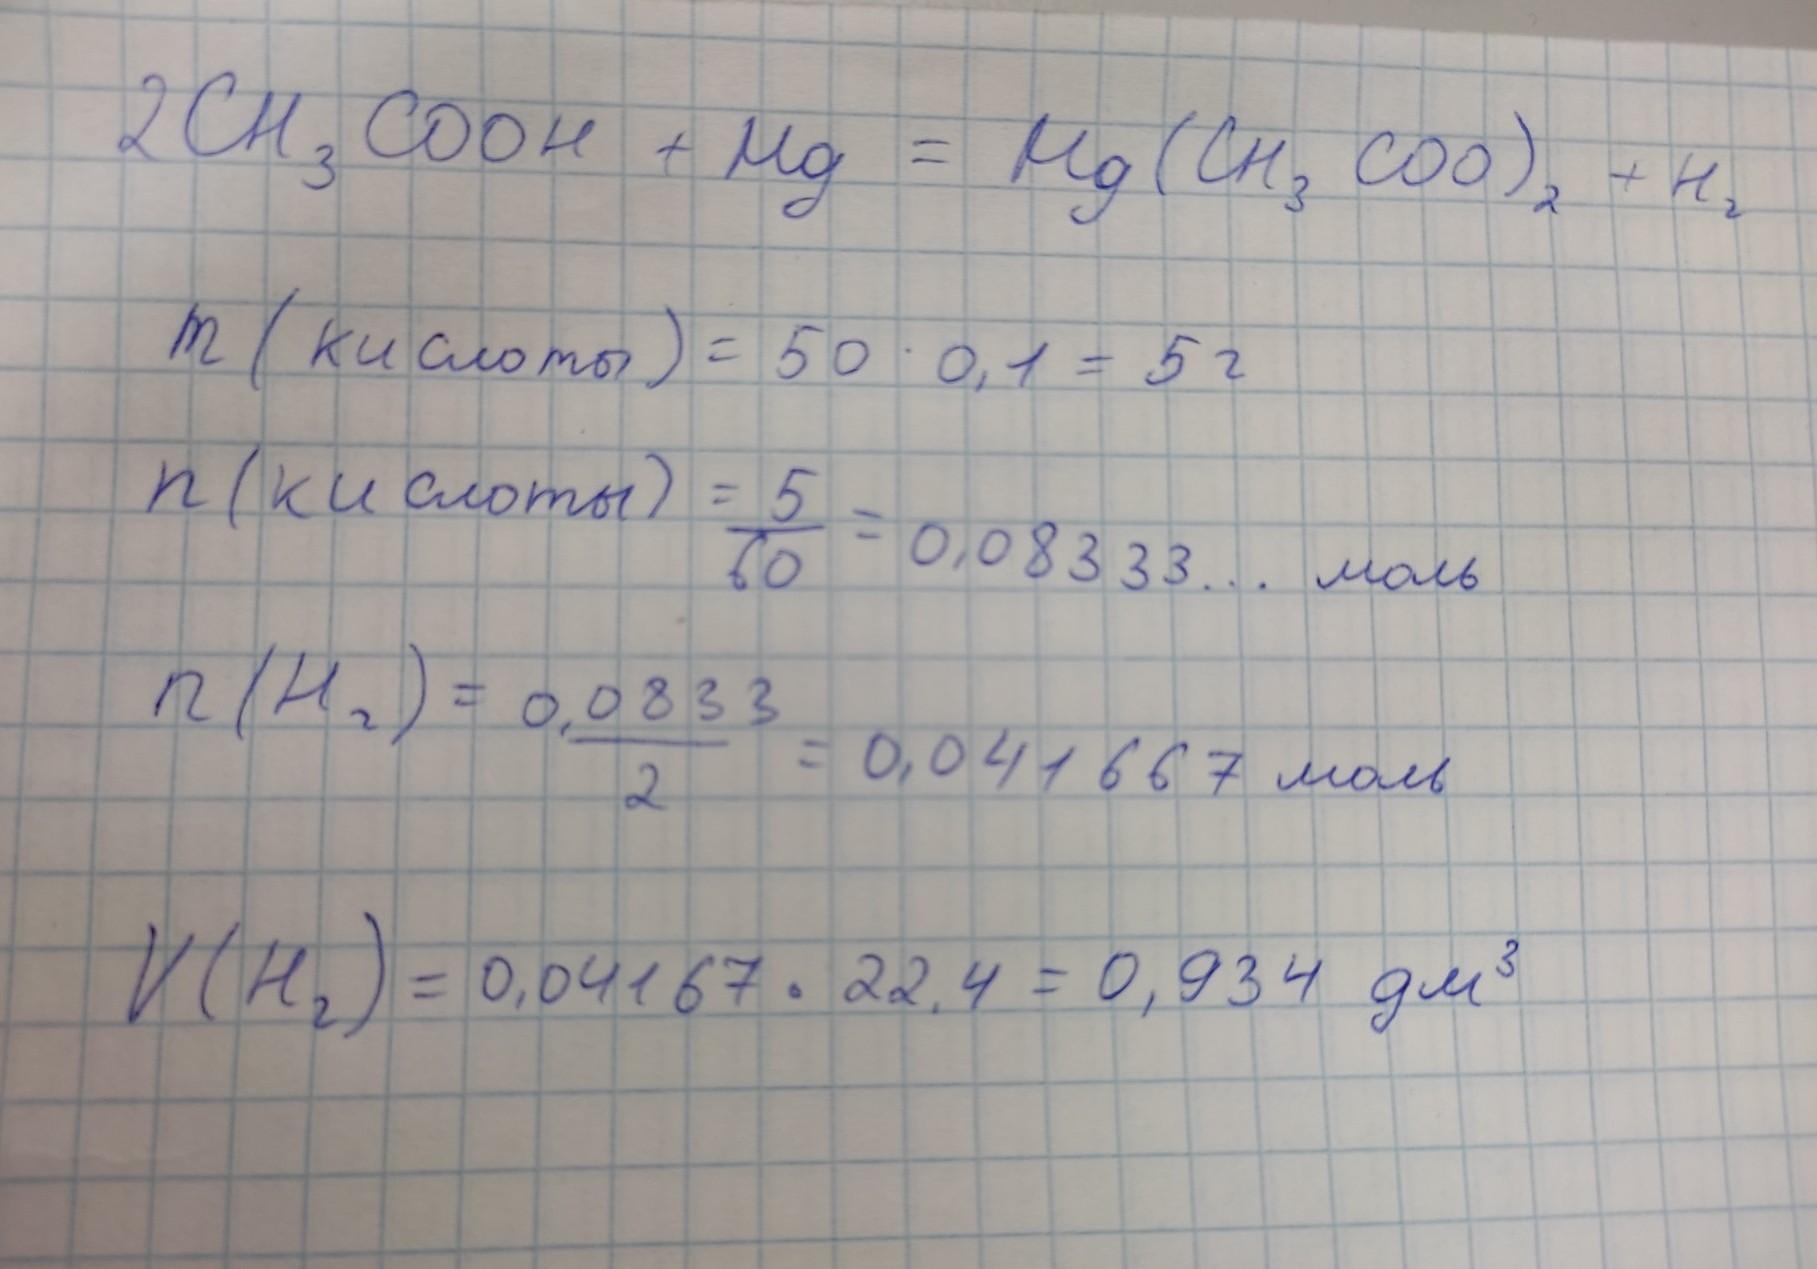 2CH₃COOH + Mg = Mg(CH₃COO)₂ + H₂
m(кислоты) = 50 · 0,1 = 5 г
n(кислоты) = 5/60 = 0,08333... моль
n(H₂) = 0,0833/2 = 0,041667 моль
V(H₂) = 0,04167 · 22,4 = 0,934 дм³